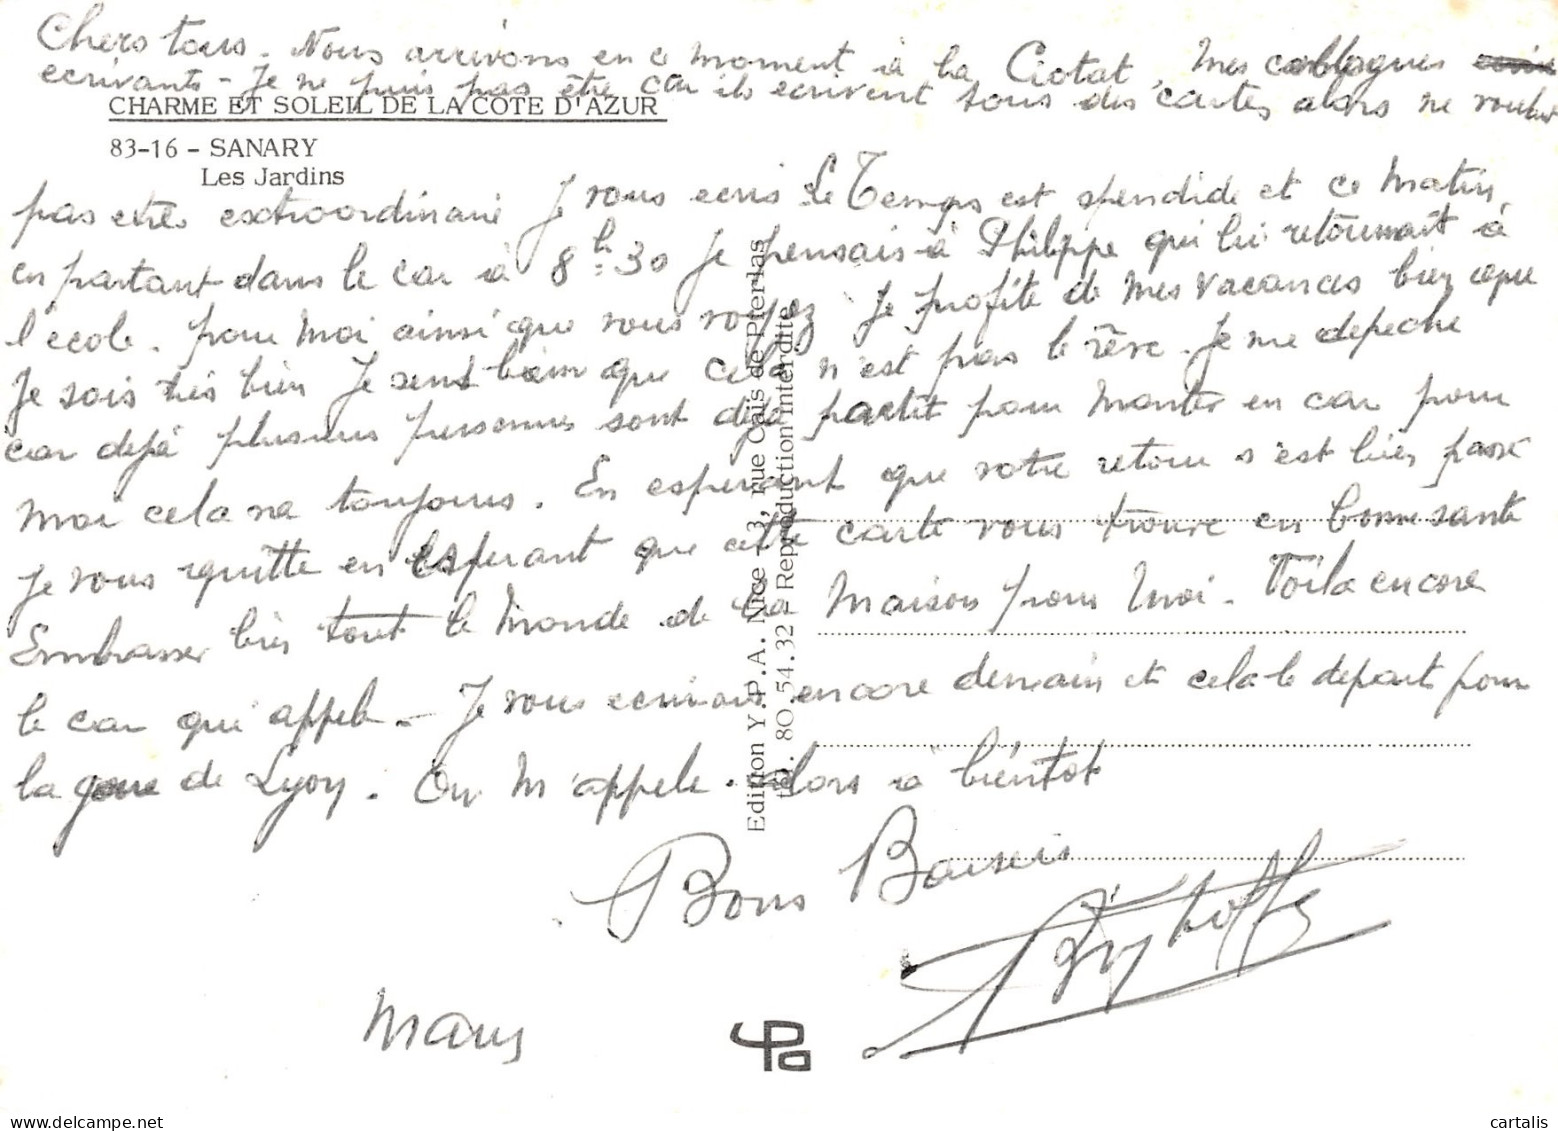 Chers tous. Nous arrivons en ce moment à la Ciotat, mes
ecrivants - Je ne puis pas être car ils ecrivent tous des cartes alors ne voulant
CHARME ET SOLEIL DE LA COTE D'AZUR
83-16 - SANARY
Les Jardins
pas etres extraordinaire Je vous ecris Le Temps est splendide et ce matin
en partant dans le car à 8h30 Je pensais à Philippe qui lui retournait à
l'école. pour moi ainsi que vous voyez Je profite de mes vacances bien que
Je sois très bien Je sent bien que cela n'est pas le rêve. Je me depeche
car dejà plusieurs personnes sont dejà partit pour monter en car pour
moi cela va toujours. En esperant que votre retour s'est bien passé
Je vous quitte en esperant que cette carte vous trouve en bonne santé
Embrasser bien tout le monde de la maison pour moi. Voila encore
le car qui appele - Je vous ecrirais encore demain et cela le depart pour
la gare de Lyon. On m'appele. Alors à bientot
Bons Baisers
Edition Y.P.A. Nice - 3, rue Caïs de Pierlas
tél. 80.54.32 - Reproduction interdite
cartalis
delcampe.net